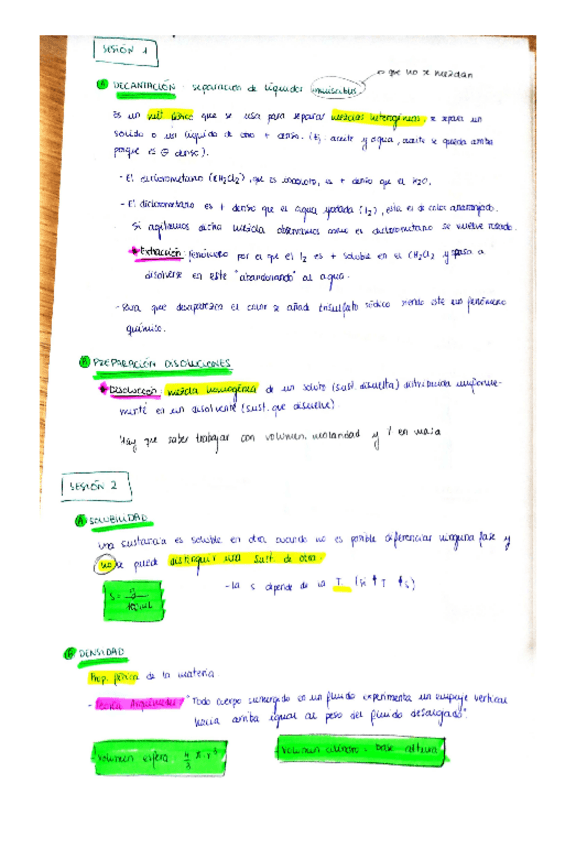 SESIÓN 1
→ que no se mezclan
A DECANTACIÓN: separación de líquidos inmiscibles.
Es un mét. físico que se usa para separar mezclas heterogéneas, se separa un
sólido o un líquido de otro + denso. (Ej. aceite y agua, aceite se queda arriba
porque es ⊖ denso).
- El diclorometano (CH2Cl2), que es incoloro, es + denso que el H2O.
- El diclorometano es + denso que el agua yodada (I2), esta es de color anaranjado.
Si agitamos dicha mezcla observamos como el diclorometano se vuelve rosado.
* Extracción: fenómeno por el que el I2 es + soluble en el CH2Cl2 y pasa a
disolverse en este "abandonando" al agua.
- Para que desaparezca el color se añade tiosulfato sódico siendo este un fenómeno
químico.
B PREPARACIÓN DISOLUCIONES
* Disolución: mezcla homogénea de un soluto (sust. disuelta) distribuida uniforme-
mente en un disolvente (sust. que disuelve)
Hay que saber trabajar con volumen, molaridad y % en masa
SESIÓN 2
A SOLUBILIDAD
Una sustancia es soluble en otra cuando no es posible diferenciar ninguna fase y
no se puede distinguir una sust. de otra.
S = g / 100 mL
- La s depende de la T. (si ↑T ↑s)
B DENSIDAD
Prop. física de la materia.
- Teoría Arquímedes: "Todo cuerpo sumergido en un fluido experimenta un empuje vertical
hacia arriba igual al peso del fluido desalojado".
- Volumen esfera: 4/3 π · r³
- Volumen cilindro = base · altura